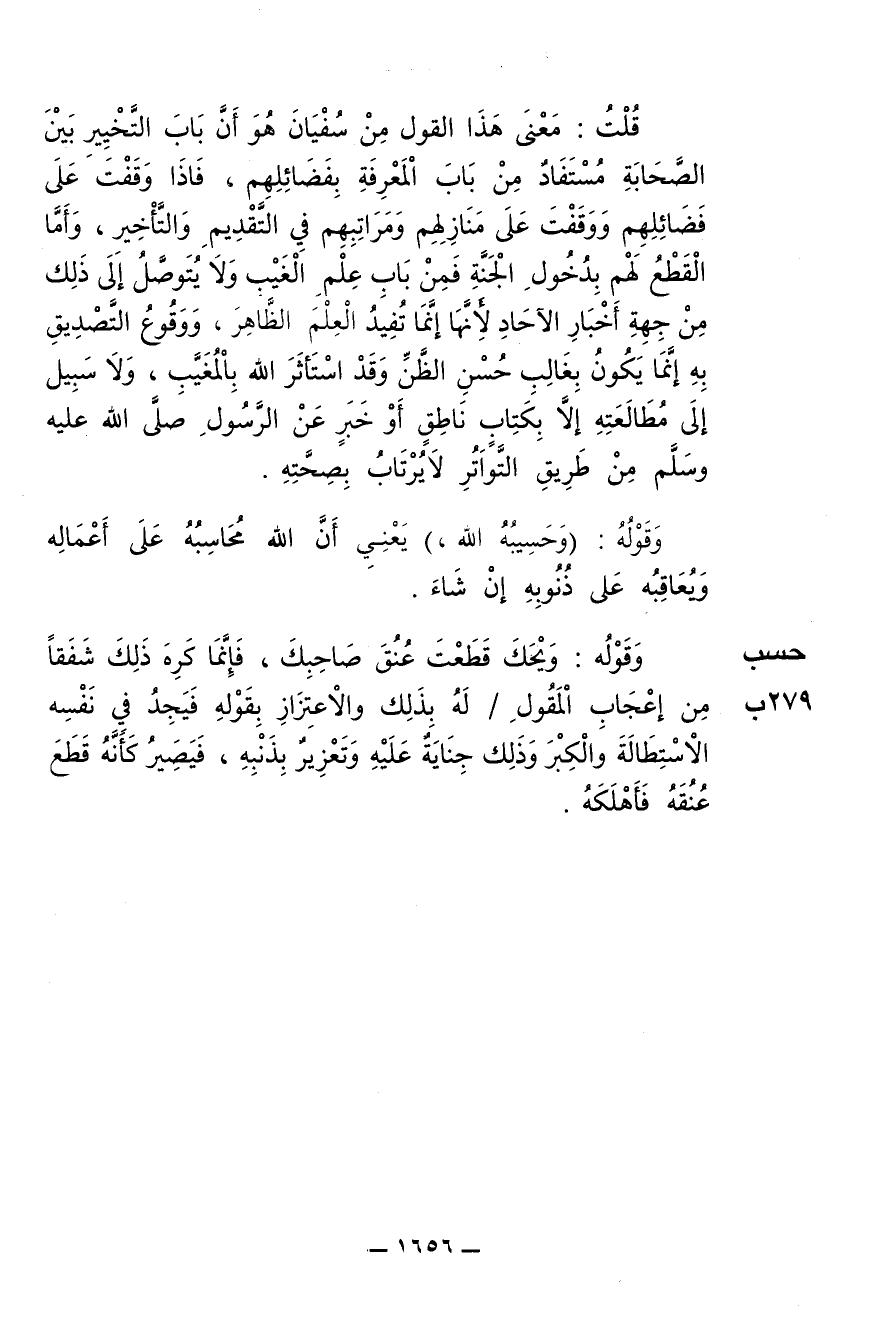 قُلْتُ : مَعْنَى هَذَا القول مِنْ سُفْيَانَ هُوَ أَنَّ بَابَ التَّخْيِيرِ بَيْنَ
الصَّحَابَةِ مُسْتَفَادٌ مِنْ بَابِ الْمَعْرِفَةِ بِفَضَائِلِهِم ، فَاذَا وَقَفْتَ عَلَى
فَضَائِلِهِم وَوَقَفْتَ عَلَى مَنَازِلِهِم وَمَرَاتِبِهِم فِي التَّقْدِيمِ وَالتَّأْخِيرِ ، وَأَمَّا
الْقَطْعُ لَهُم بِدُخُولِ الْجَنَّةِ فَمِنْ بَابِ عِلْمِ الْغَيْبِ وَلَا يُتَوصَّلُ إِلَى ذَلِك
مِنْ جِهةِ أَخْبَارِ الآحَادِ لأَِنَّهَا إِنَّمَا تُفِيدُ الْعِلْمَ الظَّاهِرَ ، وَوَقُوعُ التَّصْدِيقِ
بِهِ إِنَّمَا يَكُونُ بِغَالِبِ حُسْنِ الظَّنِّ وَقَدْ اسْتَأْثَرَ الله بِالْمُغَيَّبِ ، وَلَا سَبِيل
إِلَى مُطَالَعَتِهِ إِلَّا بِكِتَابٍ نَاطِقٍ أَوْ خَبَرٍ عَنْ الرَّسُولِ صلَّى الله عليه
وسَلَّم مِنْ طَرِيقِ التَّواَتُرِ لَايُرْتَابُ بِصِحَّتِهِ .
وَقَوْلُهُ : (وَحَسِيبُهُ الله ،) يَعْنِي أَنَّ الله مُحَاسِبُهُ عَلَى أَعْمَالِه
وَيُعَاقِبُه عَلى ذُنُوبِهِ إِنْ شَاءَ .
حسب وَقَوْلُه : وَيْحَكَ قَطَعْتَ عُنُقَ صَاحِبِكَ ، فَإِنَّمَا كَرِهَ ذَلِكَ شَفَقاً
٢٧٩ب مِن إِعْجَابِ الْمَقُولِ / لَهُ بِذَلِك والْاعتِزَازِ بِقَوْلِهِ فَيَجِدُ فِي نَفْسِه
الْاسْتِطَالَةَ والْكِبْرَ وَذَلِك جِنَايَةٌ عَلَيْهِ وَتَعْزِيرٌ بِذَنْبِهِ ، فَيَصِيرُ كَأَنَّهُ قَطَعَ
عُنُقَهُ فَأَهْلَكَهُ .
ــ ١٦٥٦ ــ